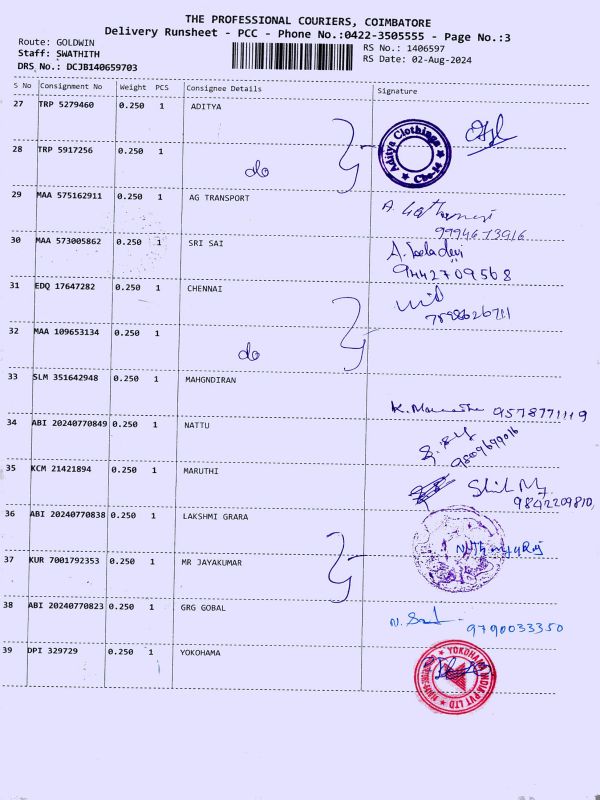 THE PROFESSIONAL COURIERS, COIMBATORE
Delivery Runsheet - PCC - Phone No.:0422-3505555 - Page No.:3
Route: GOLDWIN
RS No.: 1406597
Staff: SWATHITH
RS Date: 02-Aug-2024
DRS No.: DCJB140659703
S No Consignment No Weight PCS Consignee Details Signature
27 TRP 5279460 0.250 1 ADITYA
Aditya Clothings
Cbe-14
28 TRP 5917256 0.250 1 do
29 MAA 575162911 0.250 1 AG TRANSPORT
9994673916
30 MAA 573005862 0.250 1 SRI SAI
9442709568
31 EDQ 17647282 0.250 1 CHENNAI
32 MAA 109653134 0.250 1 do
33 SLM 351642948 0.250 1 MAHGNDIRAN
9578771119
34 ABI 20240770849 0.250 1 NATTU
35 KCM 21421894 0.250 1 MARUTHI
9842209810,
36 ABI 20240770838 0.250 1 LAKSHMI GRARA
37 KUR 7001792353 0.250 1 MR JAYAKUMAR
38 ABI 20240770823 0.250 1 GRG GOBAL
9790033350
39 DPI 329729 0.250 1 YOKOHAMA
YOKOHAMA INDIA PVT LTD